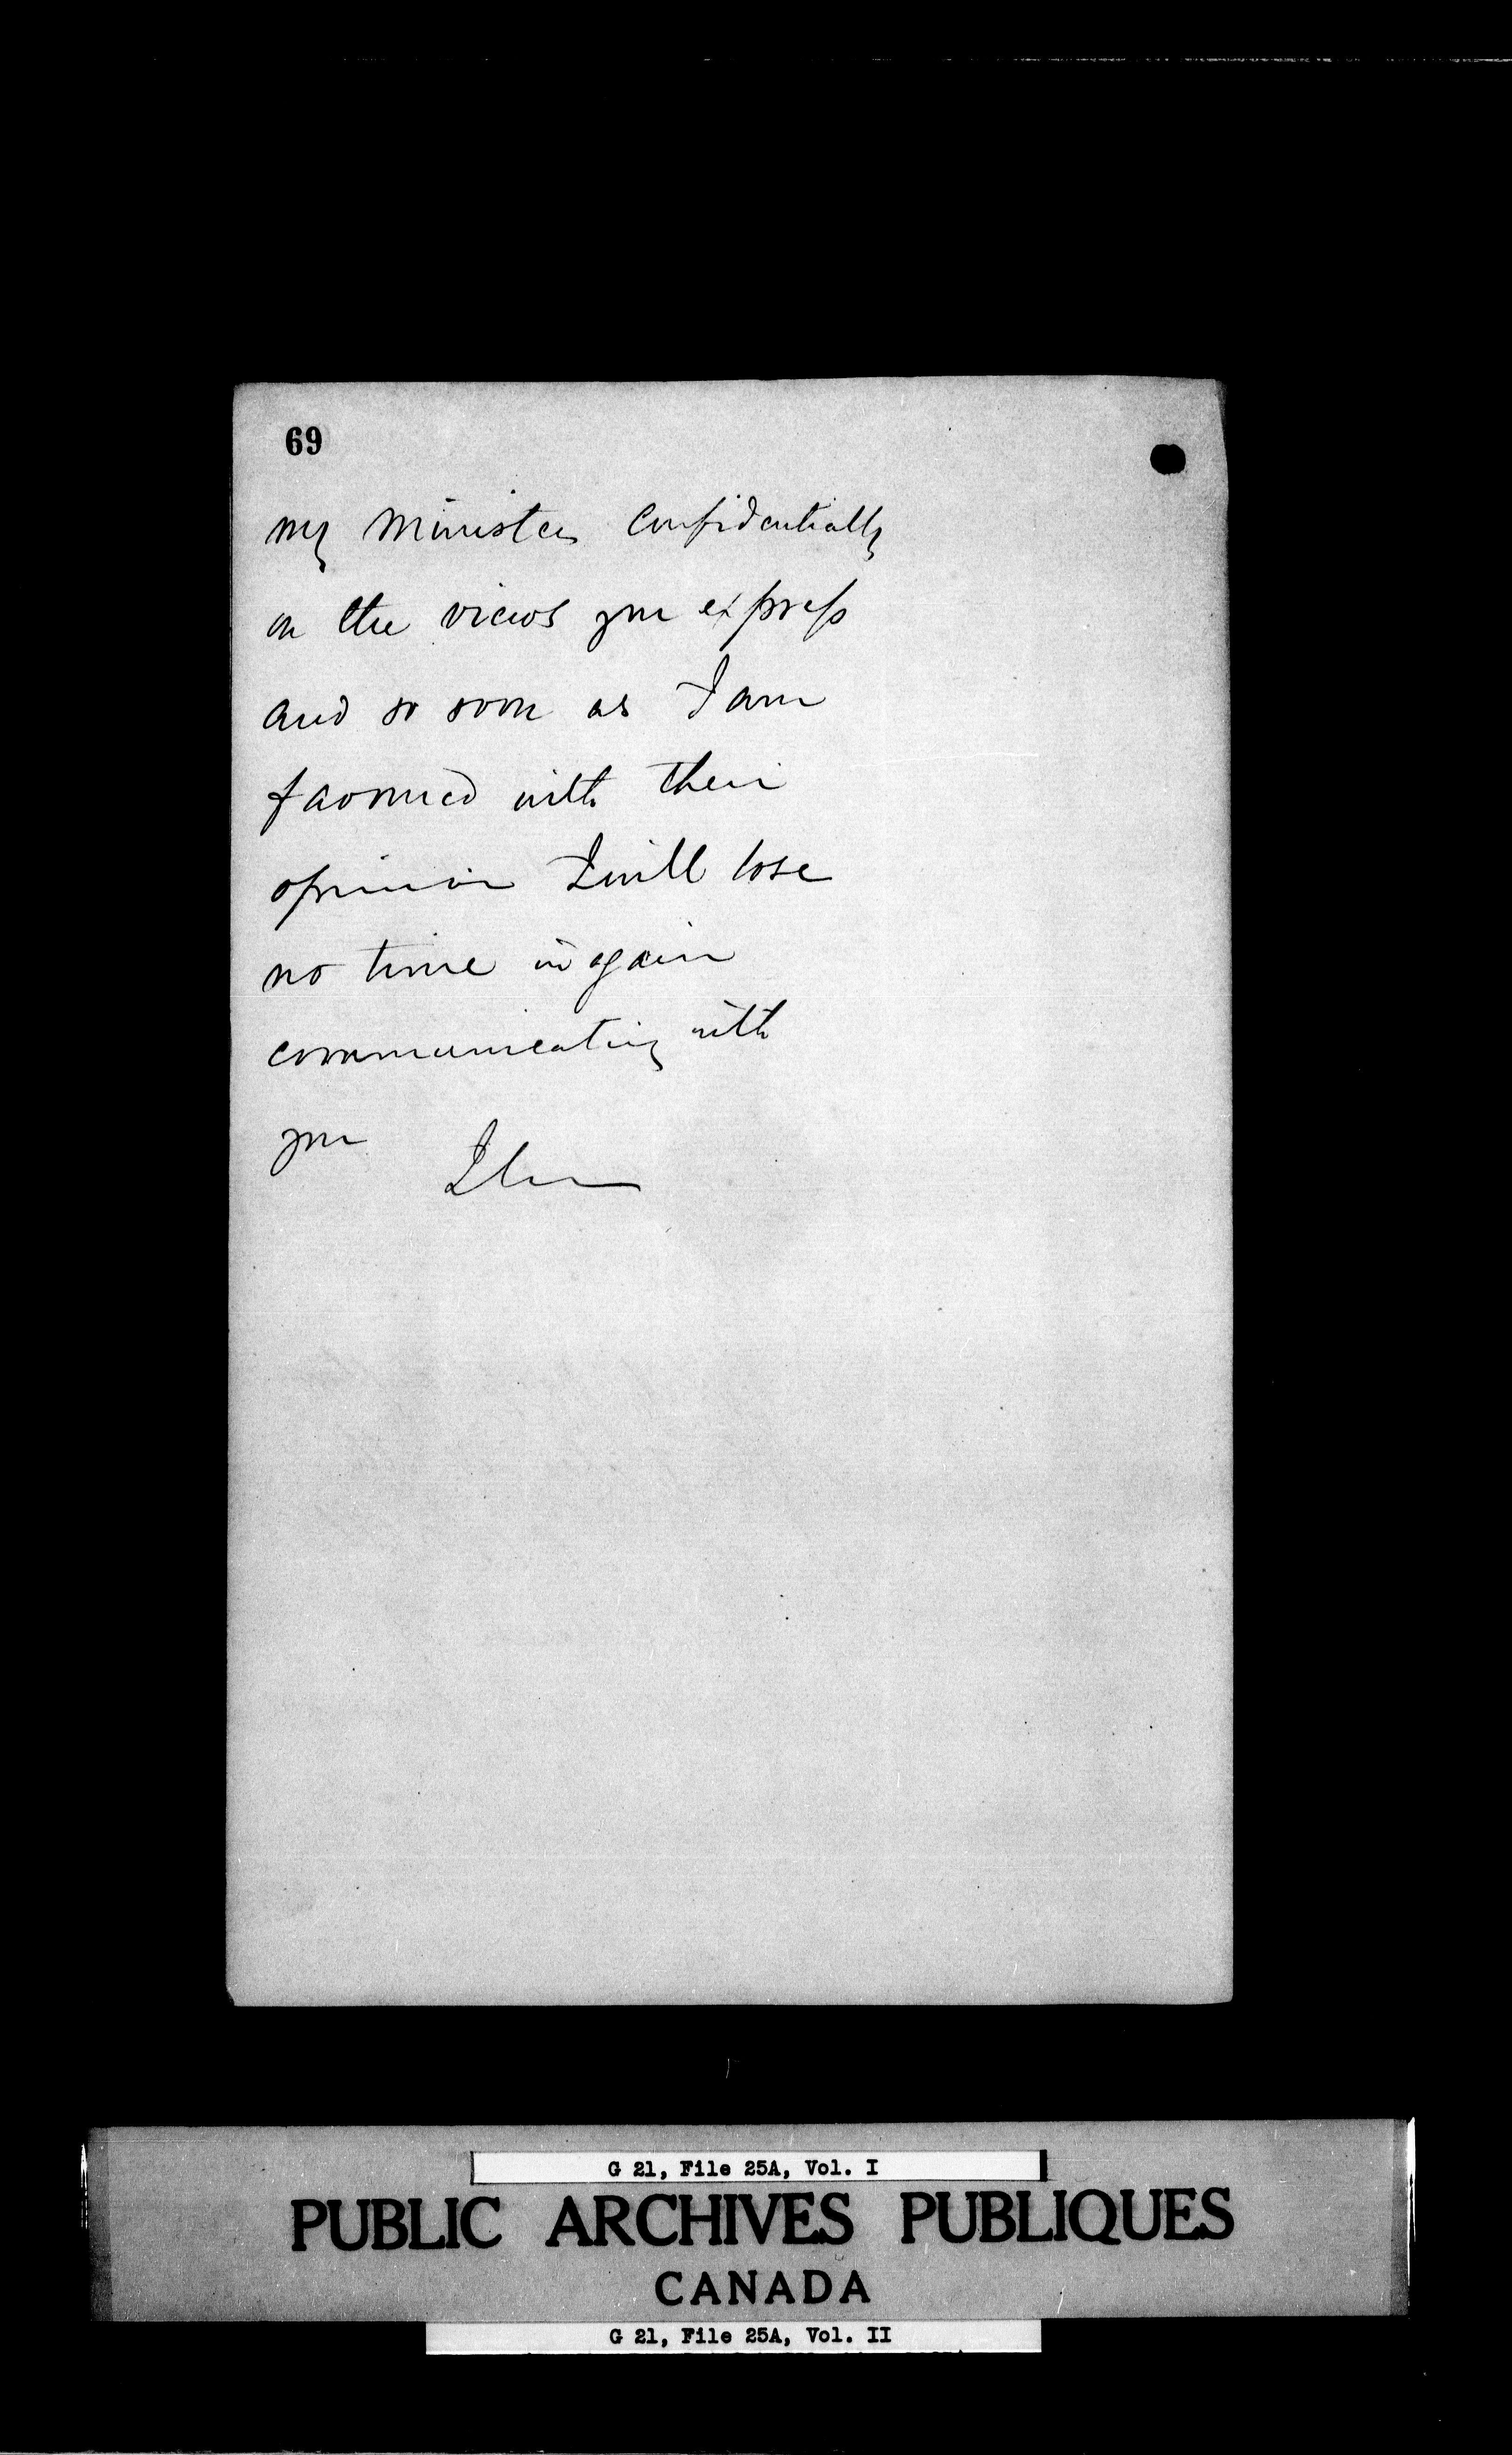 69
my Ministers Confidentially
on the views you express
and so soon as I am
favoured with their
opinion I will lose
no time in again
communicating with
you
I have
G 21, File 25A, Vol. I
PUBLIC ARCHIVES PUBLIQUES
CANADA
G 21, File 25A, Vol. II